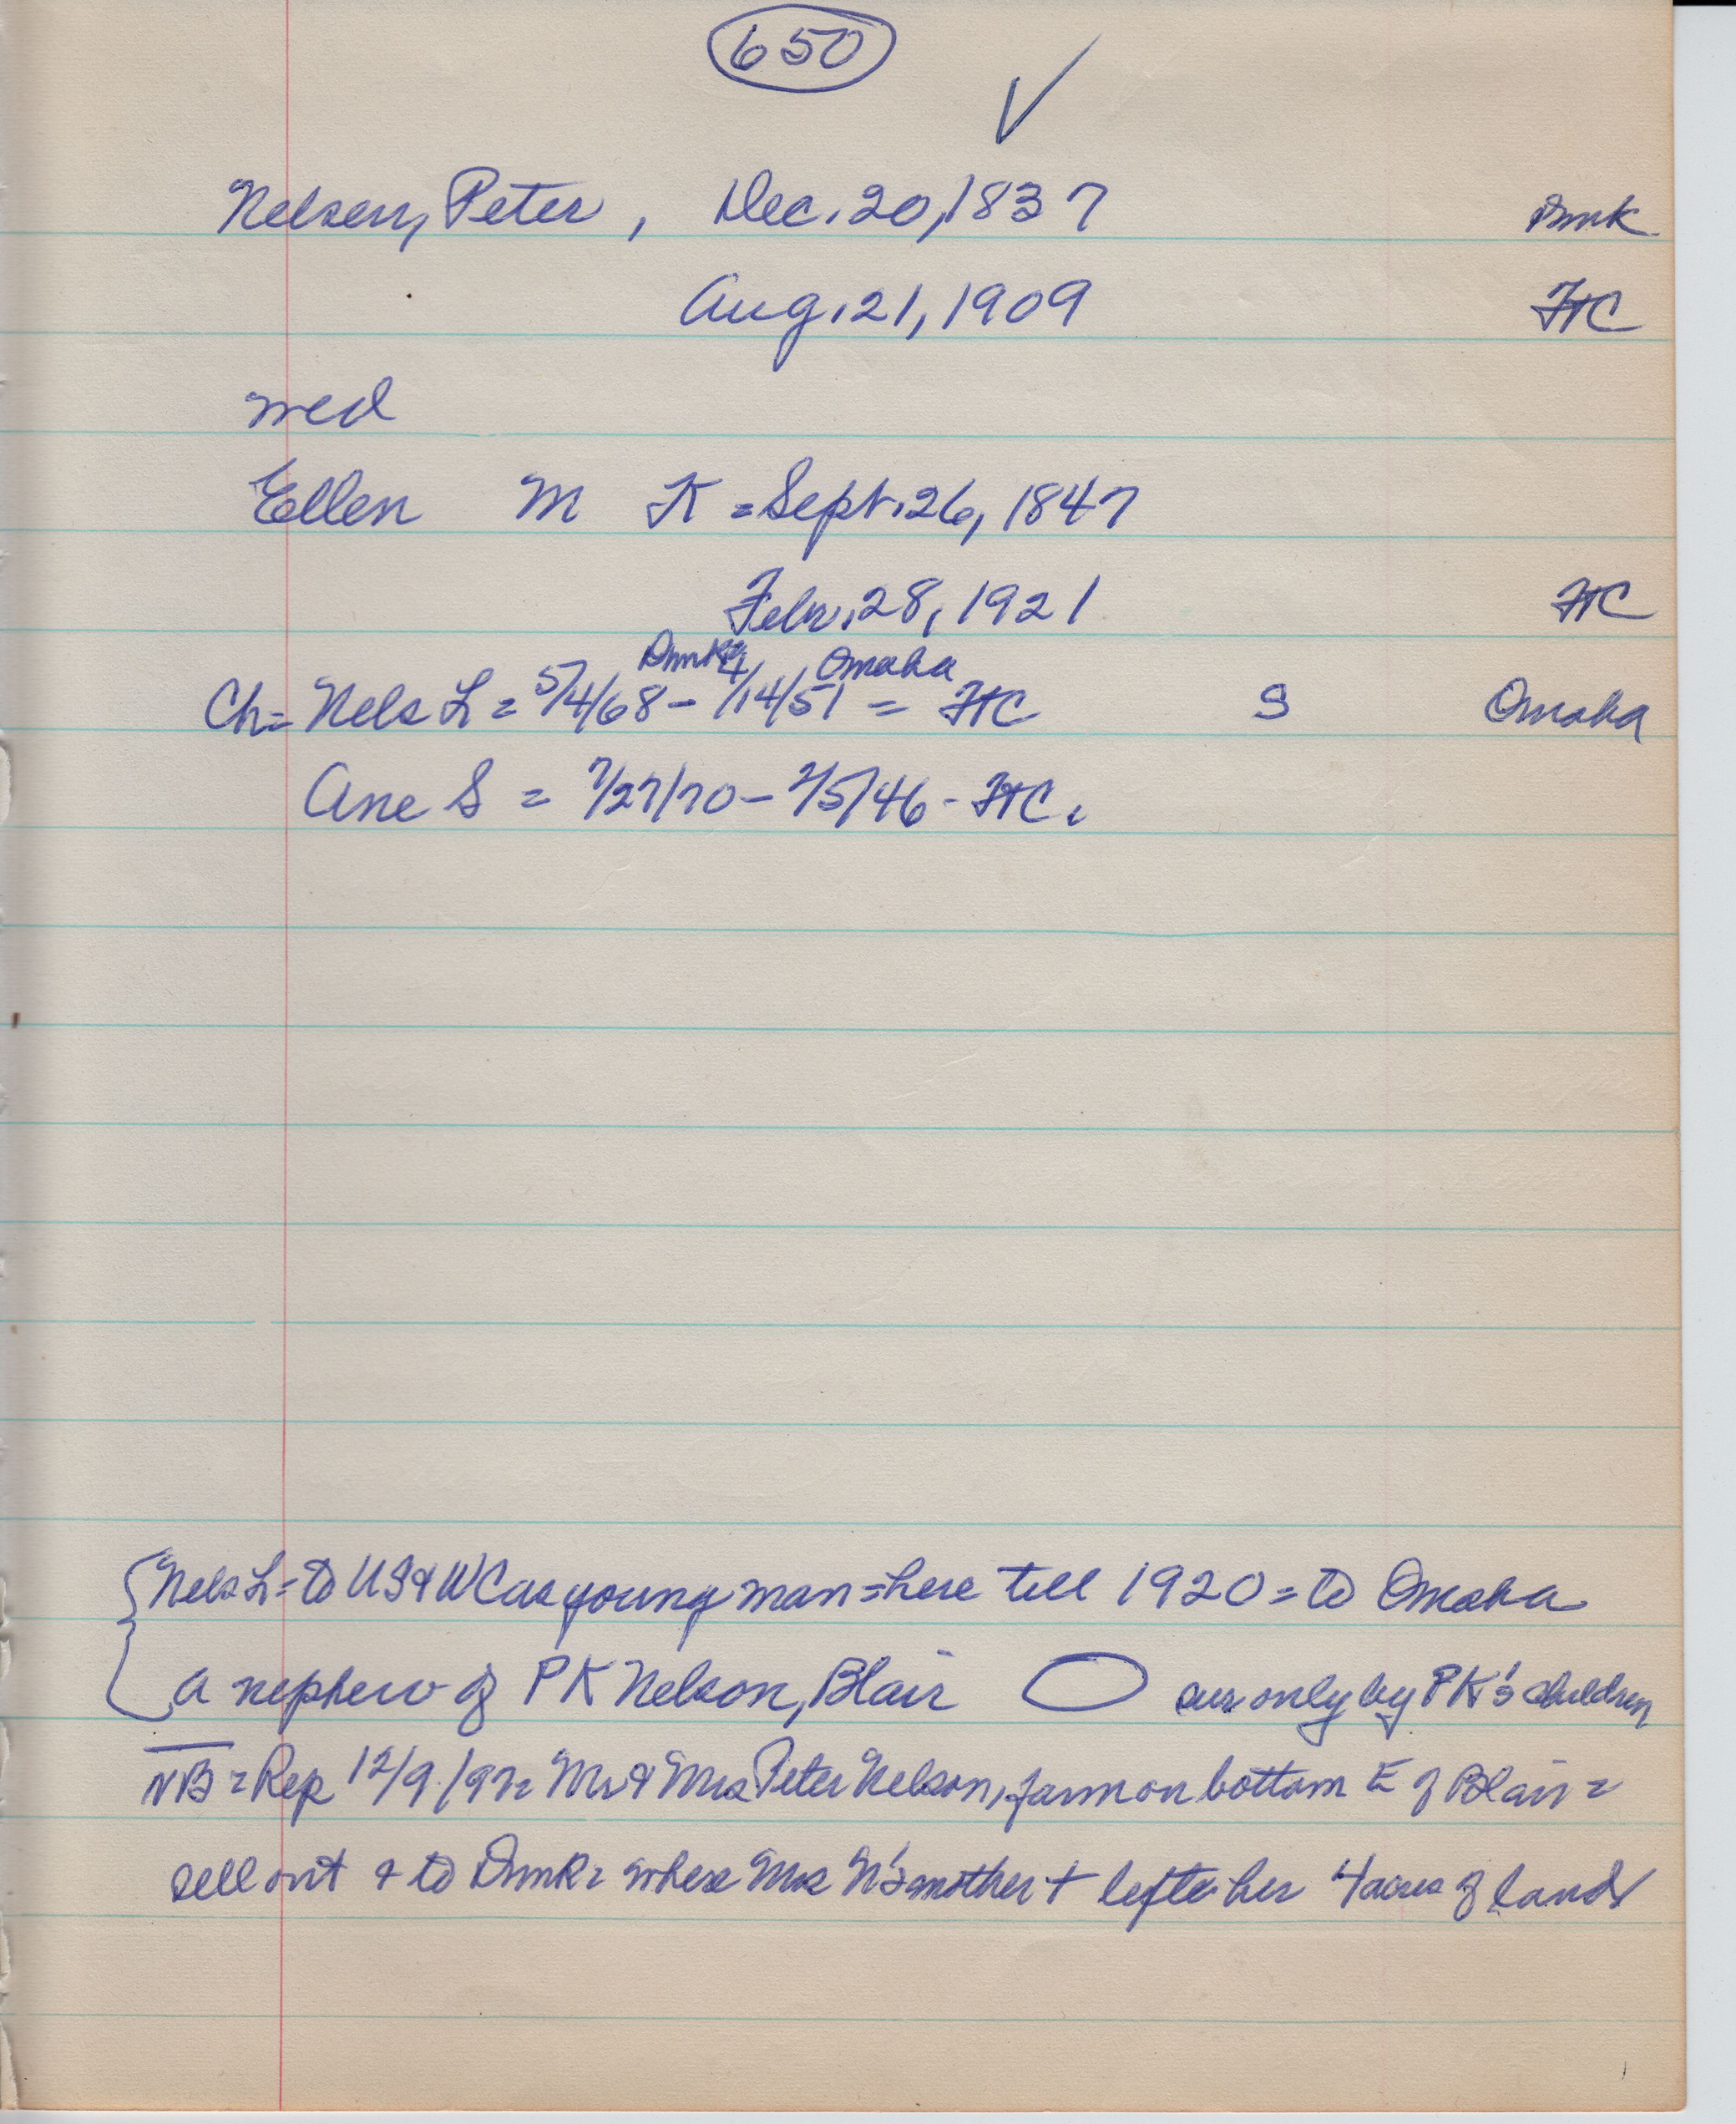 650
✓
Nelsen, Peter, Dec. 20, 1837 Dmk
Aug. 21, 1909 FtC
med
Ellen M K = Sept. 26, 1847
Febr. 28, 1921 FtC
Dmk Omaha
Ch = Nels L = 5/4/68 - 4/14/51 = FtC S Omaha
Ane S = 7/27/70 - 2/5/46 - FtC.
Nels L = to US & WC as young man = here till 1920 = to Omaha
a nephew of PK Nelson, Blair sur only by PK's children
NB = Rep 12/9/97 = Mr & Mrs Peter Nelson, farm on bottom E of Blair =
sell out & to Dmk = where Mrs N's mother + left her 4 acres of land